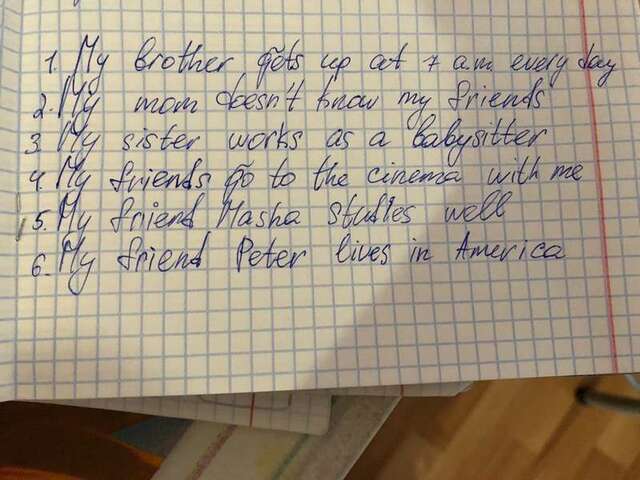 1. My brother gets up at 7 a.m. every day
2. My mom doesn't know my friends
3. My sister works as a babysitter
4. My friends go to the cinema with me
5. My friend Masha studies well
6. My friend Peter lives in America